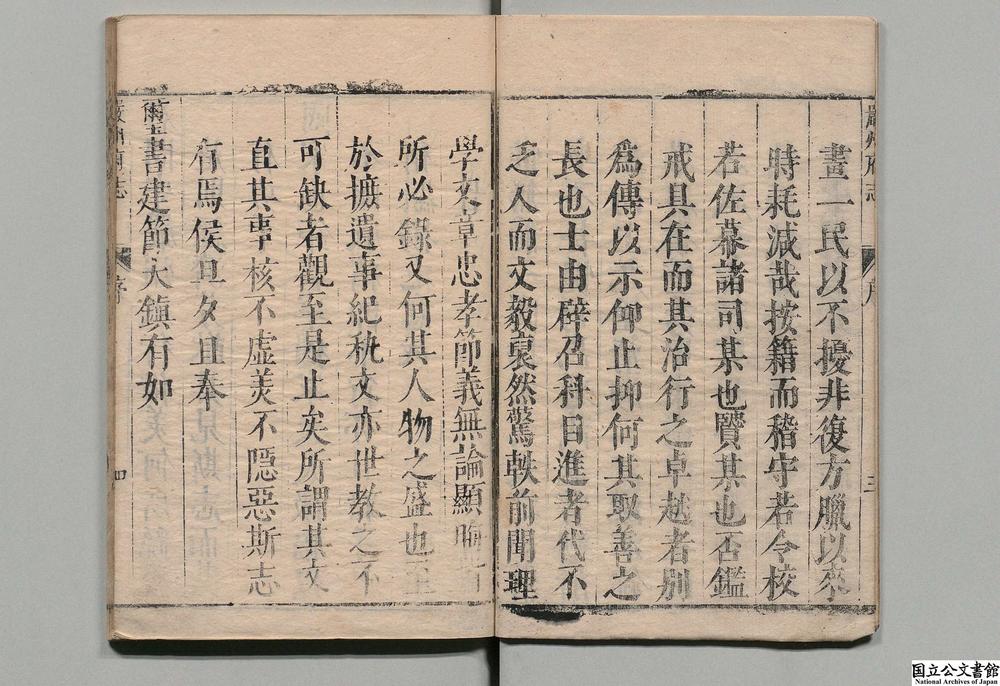 嚴州府志
序
三
畫一民以不擾非復方臘以來
時耗減哉按籍而稽守若令校
若佐幕諸司某也賢某也否鑑
戒具在而其治行之卓越者別
為傳以示仰止抑何其取善之
長也士由辟召科目進者代不
乏人而文毅裒然驚軼前聞理
學文章忠孝節義無論顯晦
所必錄又何其人物之盛也至
於摭遺事紀秇文亦世教之不
可缺者觀至是止矣所謂其文
直其事核不虛美不隱惡斯志
有焉侯旦夕且奉
璽書建節大鎮有如
嚴州府志
序
四
国立公文書館
National Archives of Japan